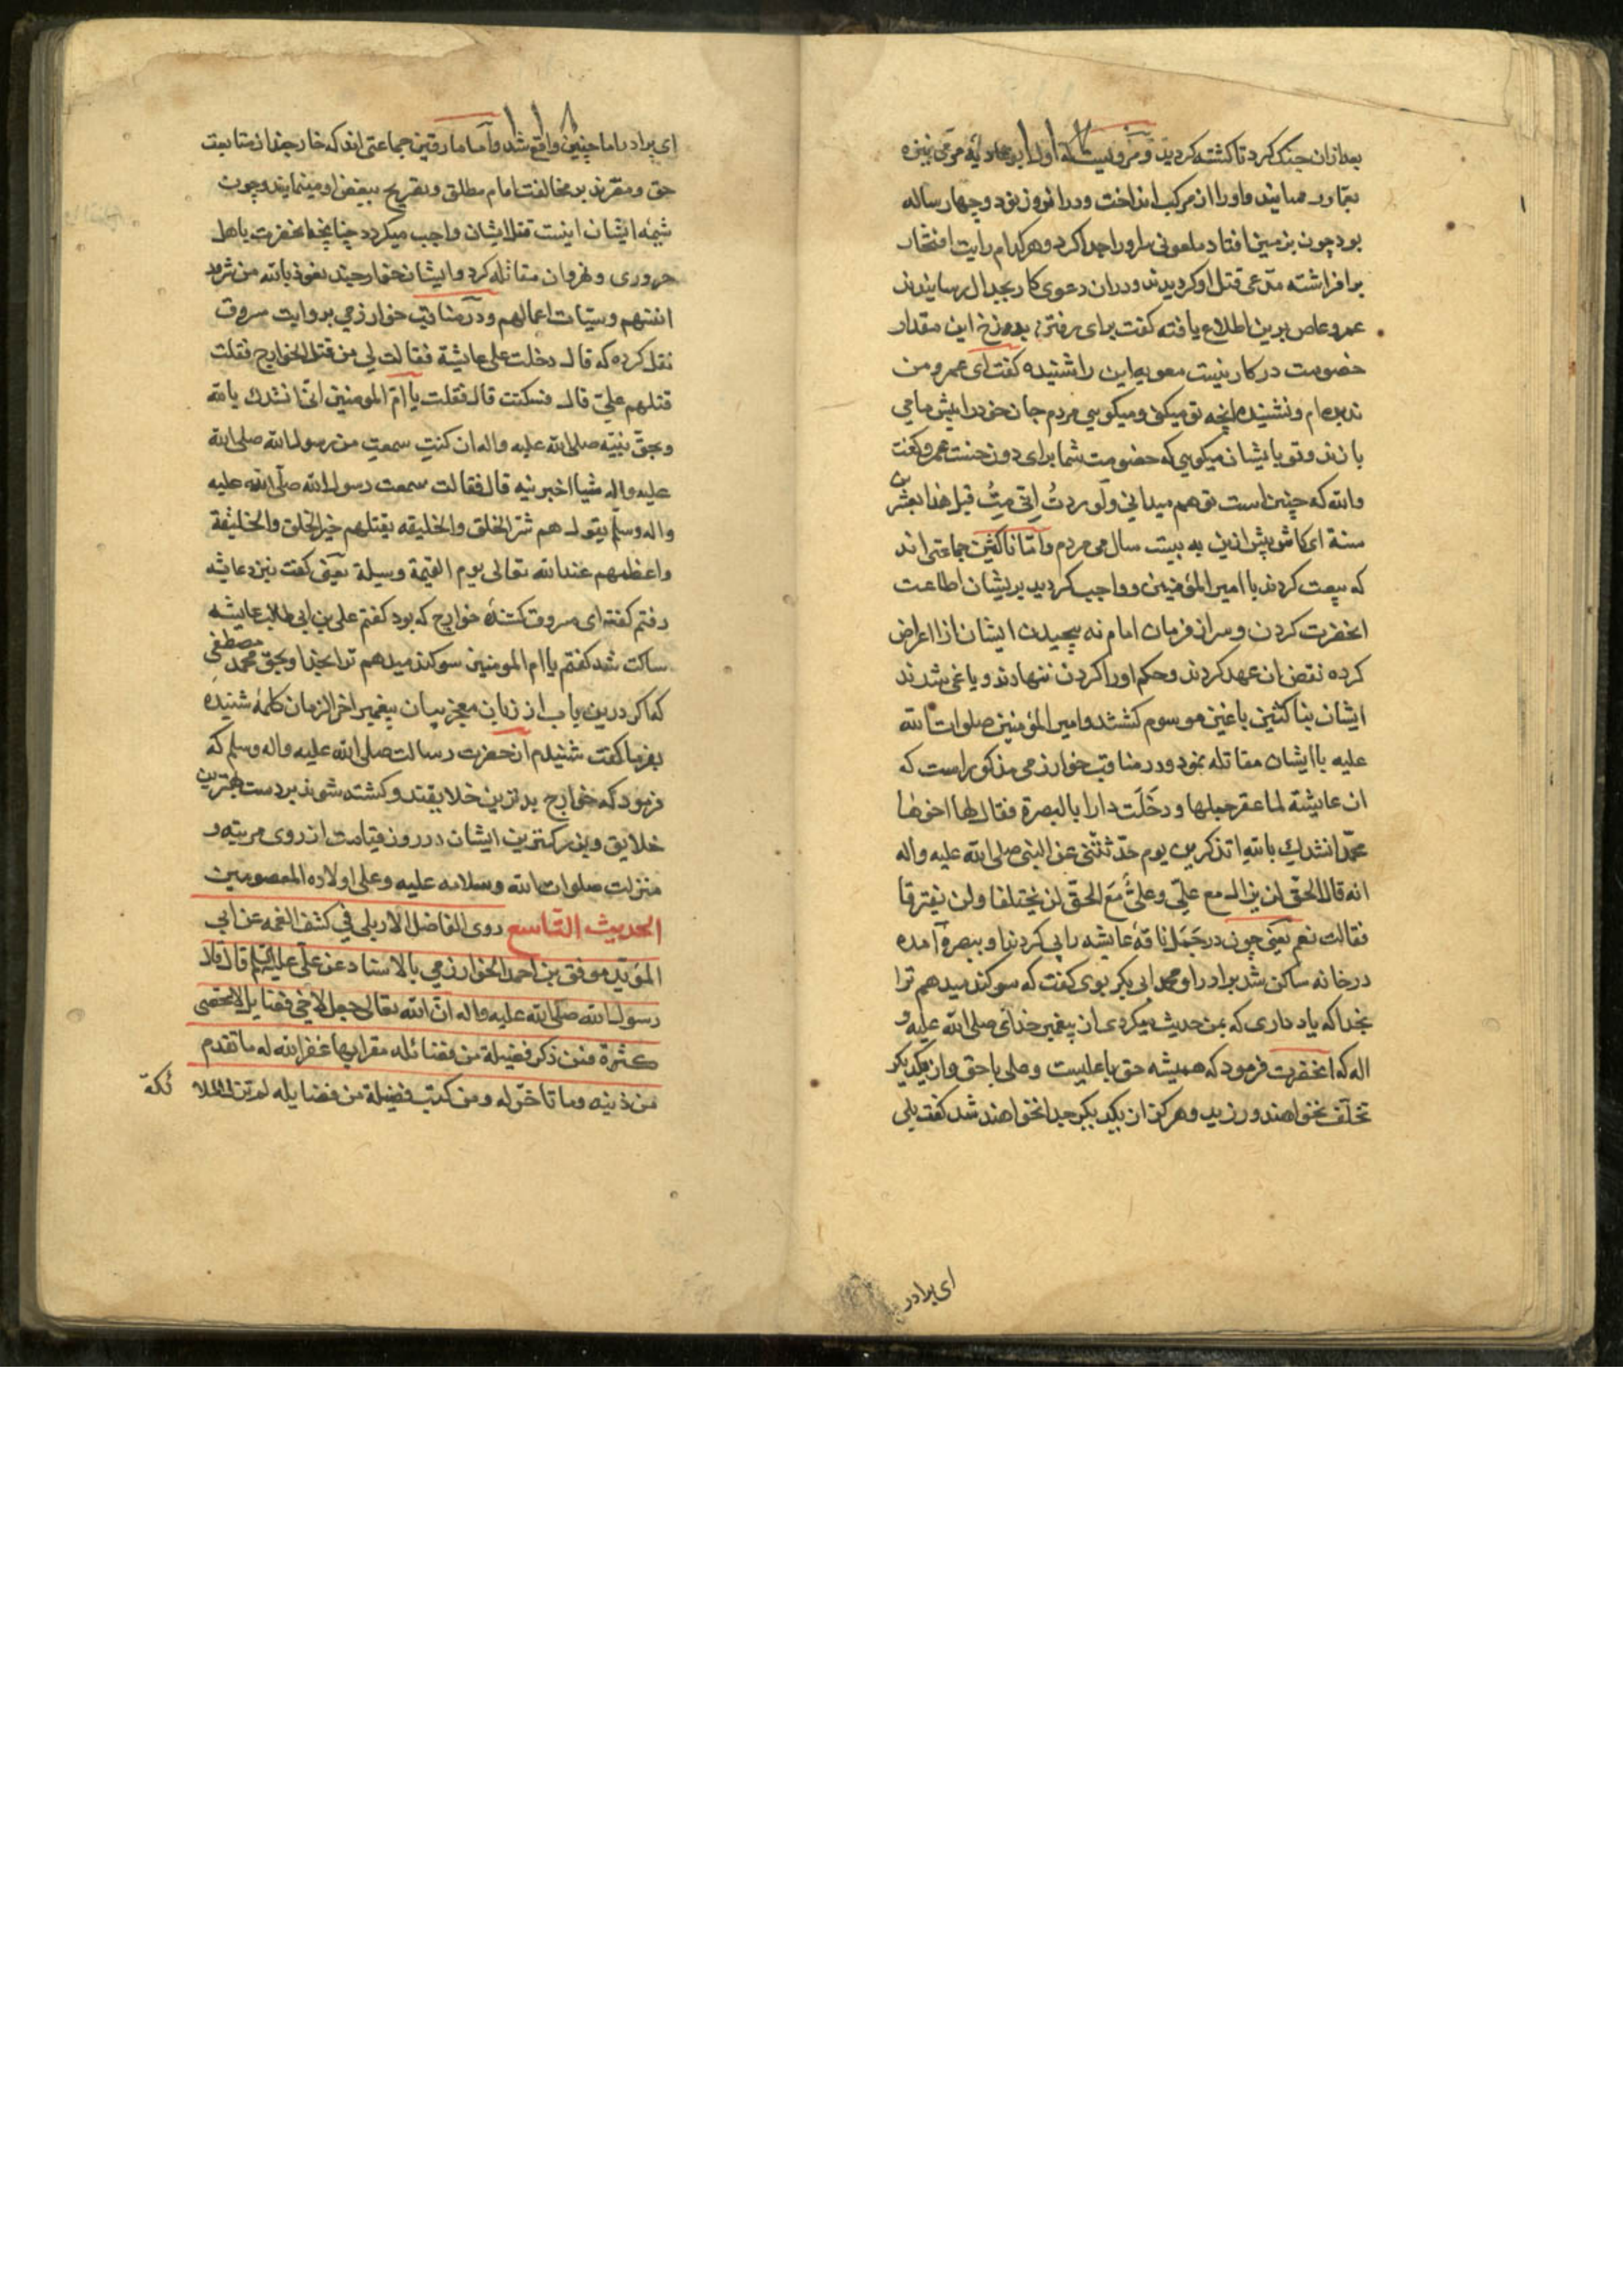 بعد ازان جنک کرد تا کشته کردید و مرویست که اول ابو عادیه مرمی نیزه
بعمار رسانید و او را از مرکب انداخت و در انروز نود و چهار ساله
بود چون بزمین افتاد ملعونی سر او را جدا کرد و هر کدام رایت افتخار
بر افراشته مدعی قتل او کردیدند و دران دعوی کار بجدال رسانیدند
عمرو عاص برین اطلاع یافته کفت برای رفتن بدوزخ این مقدار
خصومت در کار نیست معویه این را شنیده کفت ای عمرو من
ندیده‌ام و نشنیده انچه تو میکنی و میکویی مردم جان خود را پیش ما می
بازند و تو بایشان میکویی که خصومت شما برای دوزخست عمرو کفت
والله که چنین است تو هم میدانی ولوددتُ انی متُّ قبل هذا بعشرین
سنة ای کاش پیش ازین به بیست سال می مردم و اما ناکثین جماعتی اند
که بیعت کردند با امیر المؤمنین و واجب کردید بریشان اطاعت
انحضرت کردن و سر از فرمان امام نه پیچیدن ایشان ازان اعراض
کرده نقض ان عهد کردند و حکم او را کردن ننهادند و یاغی شدند
ایشان بناکثین باغین موسوم کشتند و امیر المؤمنین صلوات الله
علیه با ایشان مقاتله نمود و در مناقب خوارزمی مذکور است که
ان عایشة لما عقر جملها و دخَلَت دارا بالبصرة فقال لها اخوها
محمّد انشدكِ بالله اتذكرین یوم حدّثتنی عن النبی صلی الله علیه واله
انه قال الحقّ لن یزال مع علیّ وعلیٌّ مَعَ الحقّ لن یختلفا ولن یفترقا
فقالت نعم یعنی چون در جَمَل ناقهٔ عایشه را پی کردند او ببصره آمده
در خانه ساکن شد برادر او محمد ابی بکر بوی کفت که سوکند میدهم ترا
بخدا که یاد داری که بمن حدیث میکردی از پیغمبر خدای صلی الله علیه و
اله که انحضرت فرمود که همیشه حق با علیست و علی با حق و از یکدیکر
تخلّف نخواهند ورزید و هرکز از یکدیکر جدا نخواهند شد کفت بلی
ای برادر
ای برادر اما چنین واقع شد و اما مارقین جماعتی اند که خارجند از متابعت
حق و مقرند بر مخالفت امام مطلق و تصریح ببغض او مینمایند و چون
شیمهٔ ایشان اینست قتل ایشان واجب میکردد چنانچه انحضرت باهل
حروری و نهروان مقاتله کرد و ایشان خوارجند نعوذ بالله من شرور
انفسهم وسیّات اعمالهم و در مناقب خوارزمی بروایت مسروق
نقل کرده که قال دخلت علی عایشة فقالت لی من قتل الخوارج فقلت
قتلهم علیّ قال فسکتت قال فقلت یا امّ المومنین انّی انشدك بالله
وبحق نبیّه صلی الله علیه واله ان کنتِ سمعتِ من رسول الله صلی الله
علیه واله شیا اخبرنیه قال فقالت سمعت رسول الله صلّی الله علیه
واله وسلّم یقول هم شرّ الخلق والخلیقه یقتلهم خیر الخلق والخلیقة
واعظمهم عند الله تعالی یوم القیمة وسیلة یعنی کفت نزد عایشه
رفتم کفت ای مسروق کشندهٔ خوارج که بود کفتم علی بن ابی طالب عایشه
ساکت شد کفتم یا ام المومنین سوکند میدهم ترا بخدا و بحق محمد مصطفی
که اکر درین باب از زبان معجز بیان پیغمبر اخر الزمان کلمهٔ شنیده
بفرما کفت شنیدم از حضرت رسالت صلی الله علیه واله وسلم که
فرمود که خوارج بدترین خلایقند و کشته شوند بر دست بهترین
خلایق و بزرکترین ایشان در روز قیامت از روی مرتبه و
منزلت صلوات الله وسلامه علیه وعلی اولاده المعصومین
الحدیث التاسع روی الفاضل الاربلی فی کشف الغمه عن ابی
المؤید موفق بن احمد الخوارزمی بالاسناد عن علی علیه السلم قال قال
رسول الله صلی الله علیه واله انّ الله تعالی جعل لاخی فضایل لا تحصی
کثرة فمن ذکر فضیلة من فضائله مقرا بها غفر الله له ما تقدم
من ذنبه وما تاخّر له ومن کتب فضیلة من فضایله لم تزل الملا
ئکة